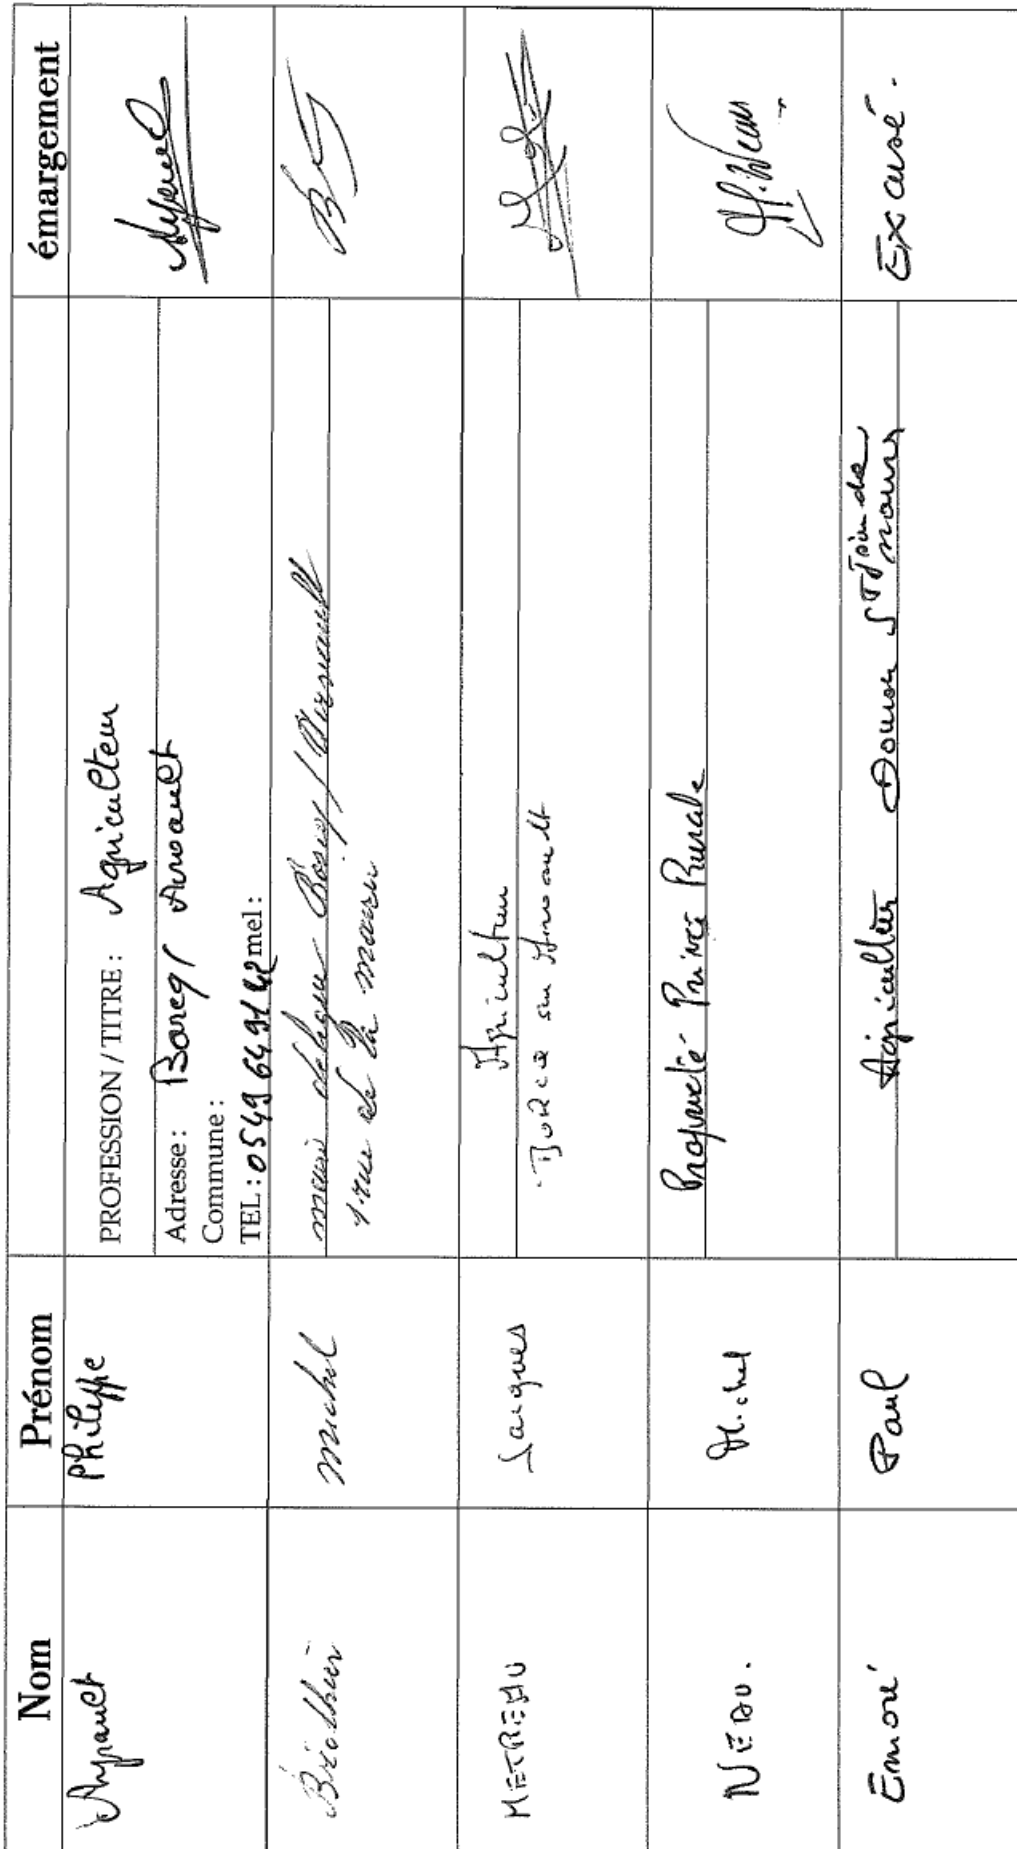 Nom Prénom émargement
Ayrault Philippe PROFESSION / TITRE : Agriculteur
Adresse : Borcq / Airvault
Commune :
TEL : 05 49 64 91 42 mel :
Michel maire délégué Borcq / Airvault
rue de la mairie
METREAU Jacques Agriculteur
BORCQ sur Airvault
NEAU. Michel Propriété Privée Rurale
Paul Agriculteur
Excusé.